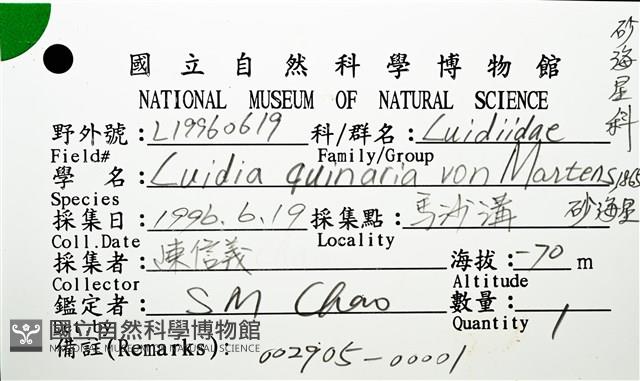 國立自然科學博物館
NATIONAL MUSEUM OF NATURAL SCIENCE
砂海星科
野外號：L19960619 科/群名：Luidiidae
Field# Family/Group
學 名：Luidia quinaria von Martens, 1865
Species
砂海星
採集日：1996.6.19 採集點：馬沙溝
Coll.Date Locality
採集者：陳信義 海拔：-70 m
Collector Altitude
鑑定者：SM Chao 數量：1
Quantity
國立自然科學博物館
NATIONAL MUSEUM OF NATURAL SCIENCE
備註(Remarks)：002905-00001